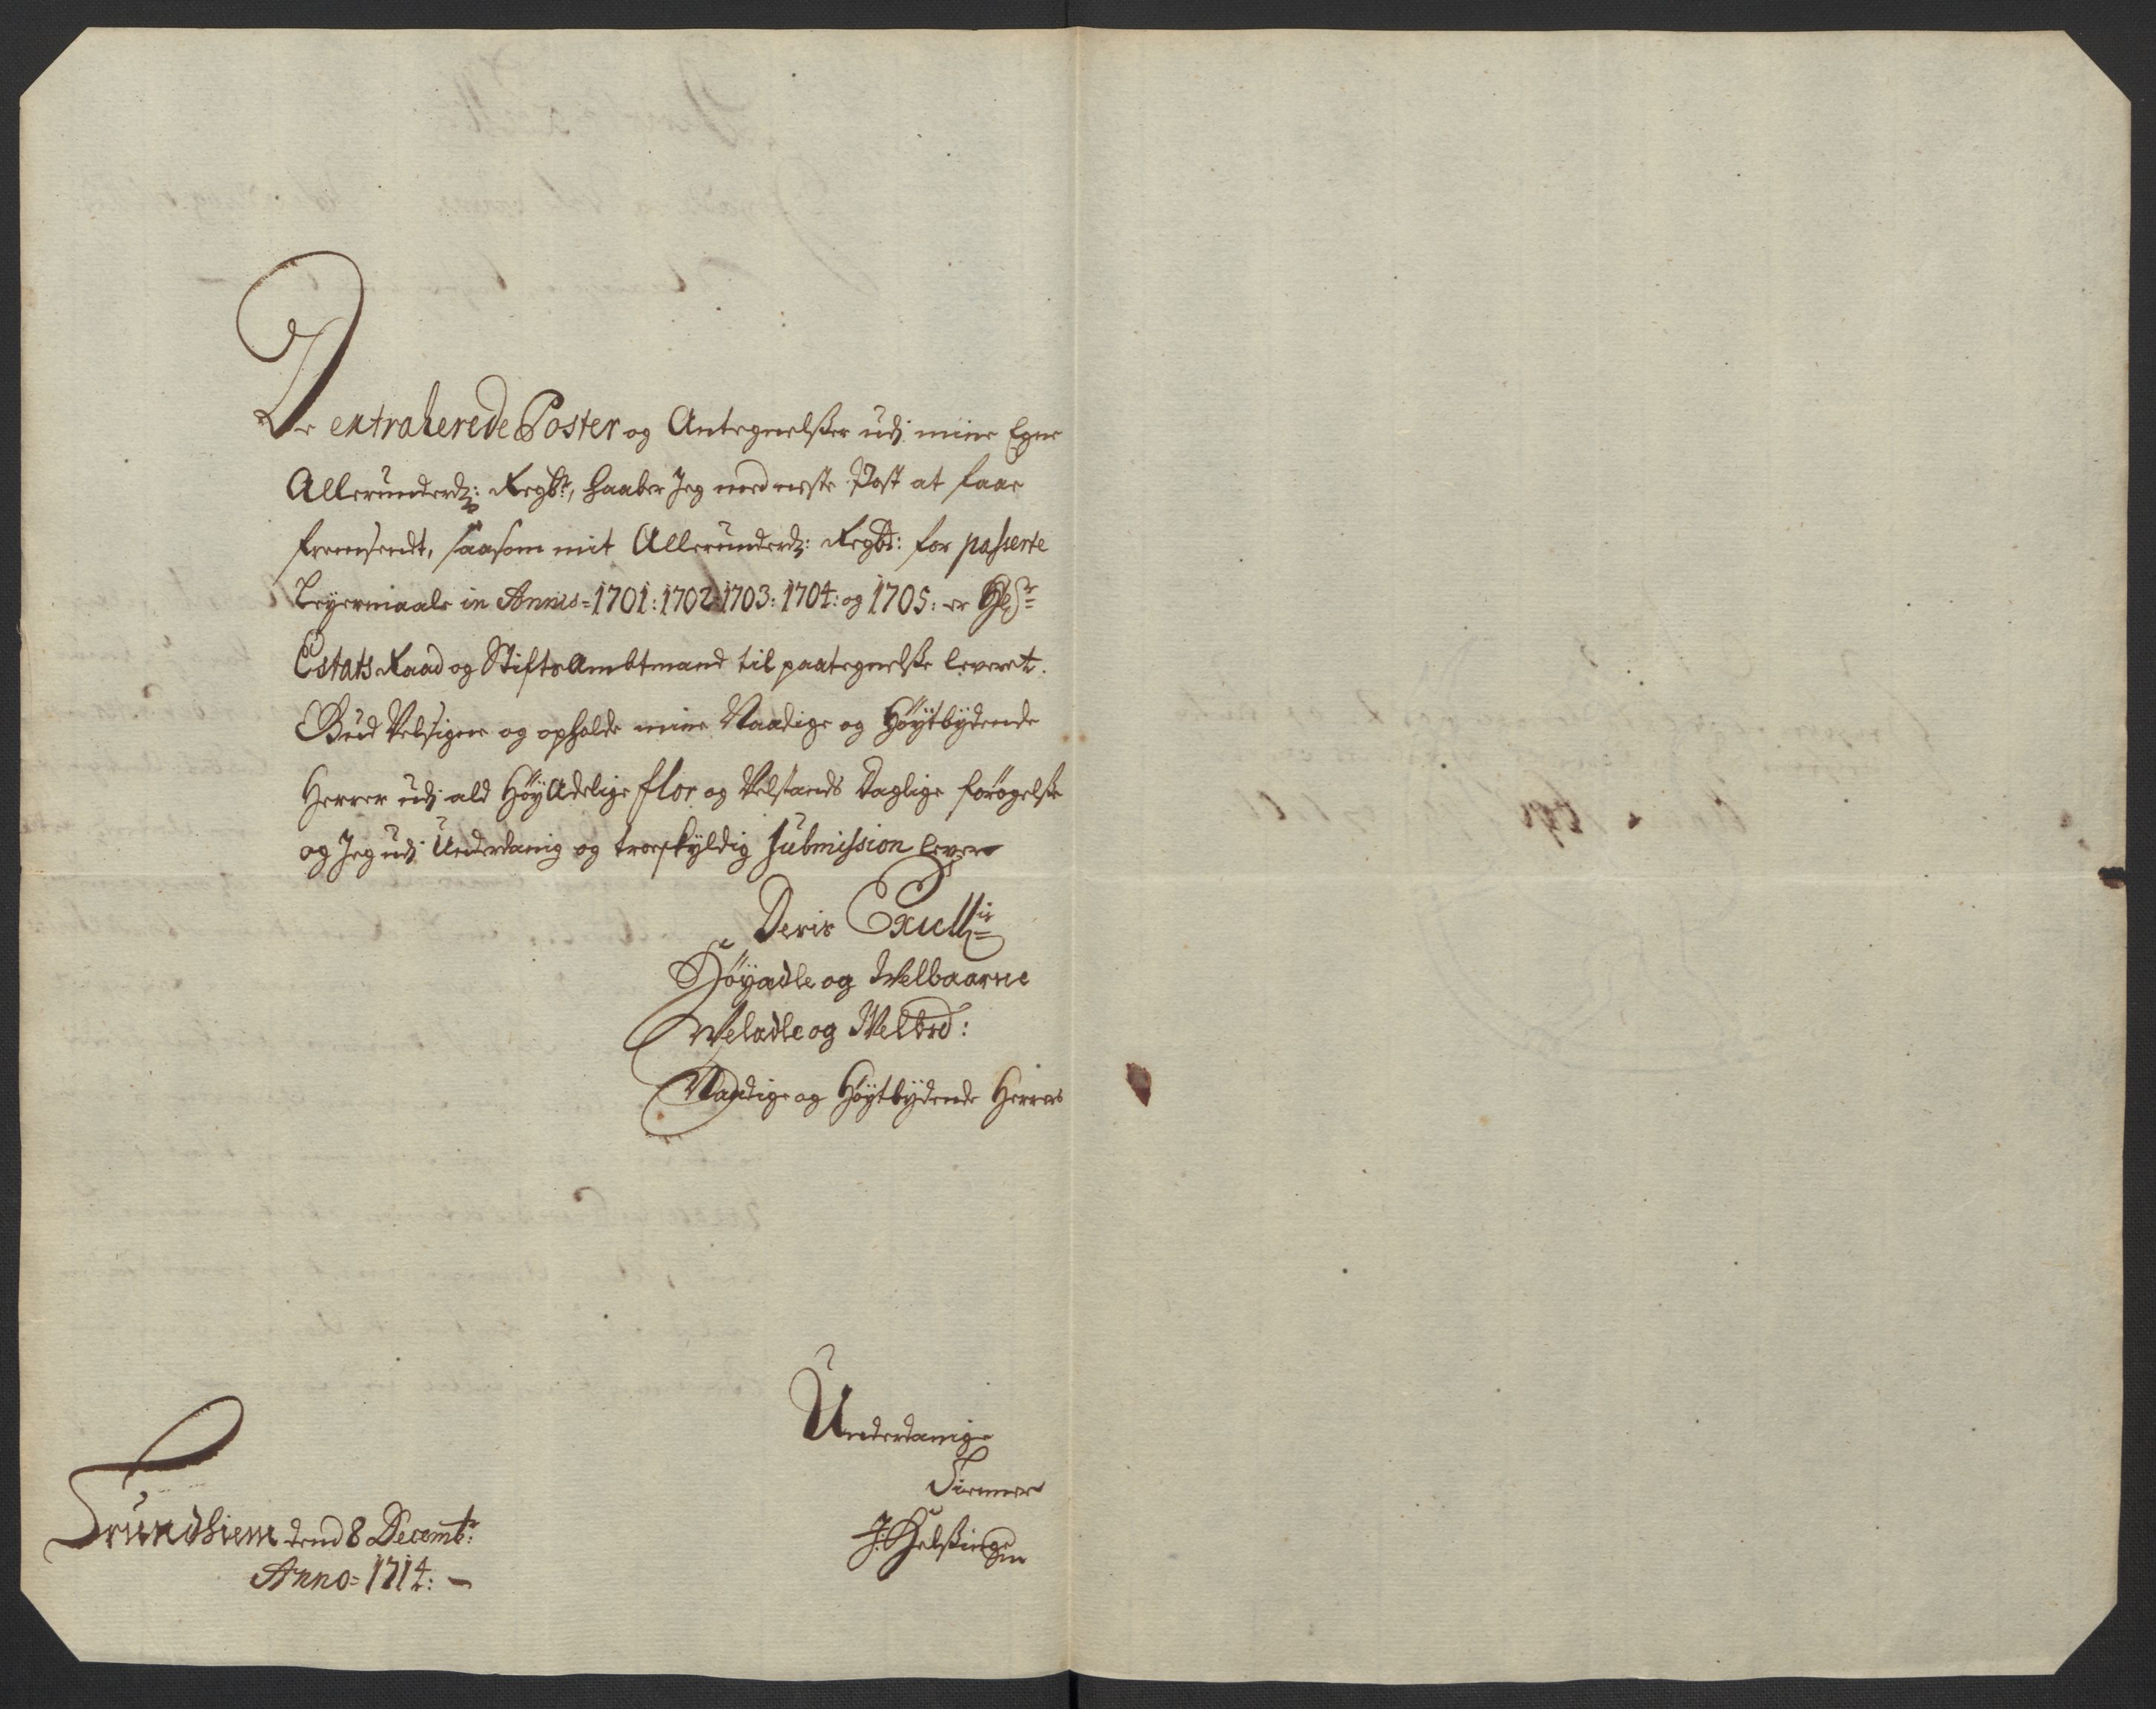 De extraherede Poster og Antegnelßer udj mine Egne
Allerunderdz: Regbr, haaber Jeg med neste Post at faae
fremsendt, saasom mit Allerunderdz: Regbr: for passerte
Leyermaale in Annis= 1701: 1702: 1703: 1704: og 1705: er
Estats Raad og StiftsAmbtmand til paategnelße leveret.
Gud Velsigne og opholde mine Naadige og Høÿtbÿdende
Herrer udj ald HøÿAdelige flor og Velstands Daglige forøgelse
og Jeg udj Underdanig og troeskÿldig submission lever
Deris Excell
Høÿadle og Welbaarne
Weladle og Welbrd:
Naadige og Høÿtbÿdende Herrers
Underdanige
Tienner
J: Helßing
Trundhiem dend 8 Decembr:
Anno= 1714: –